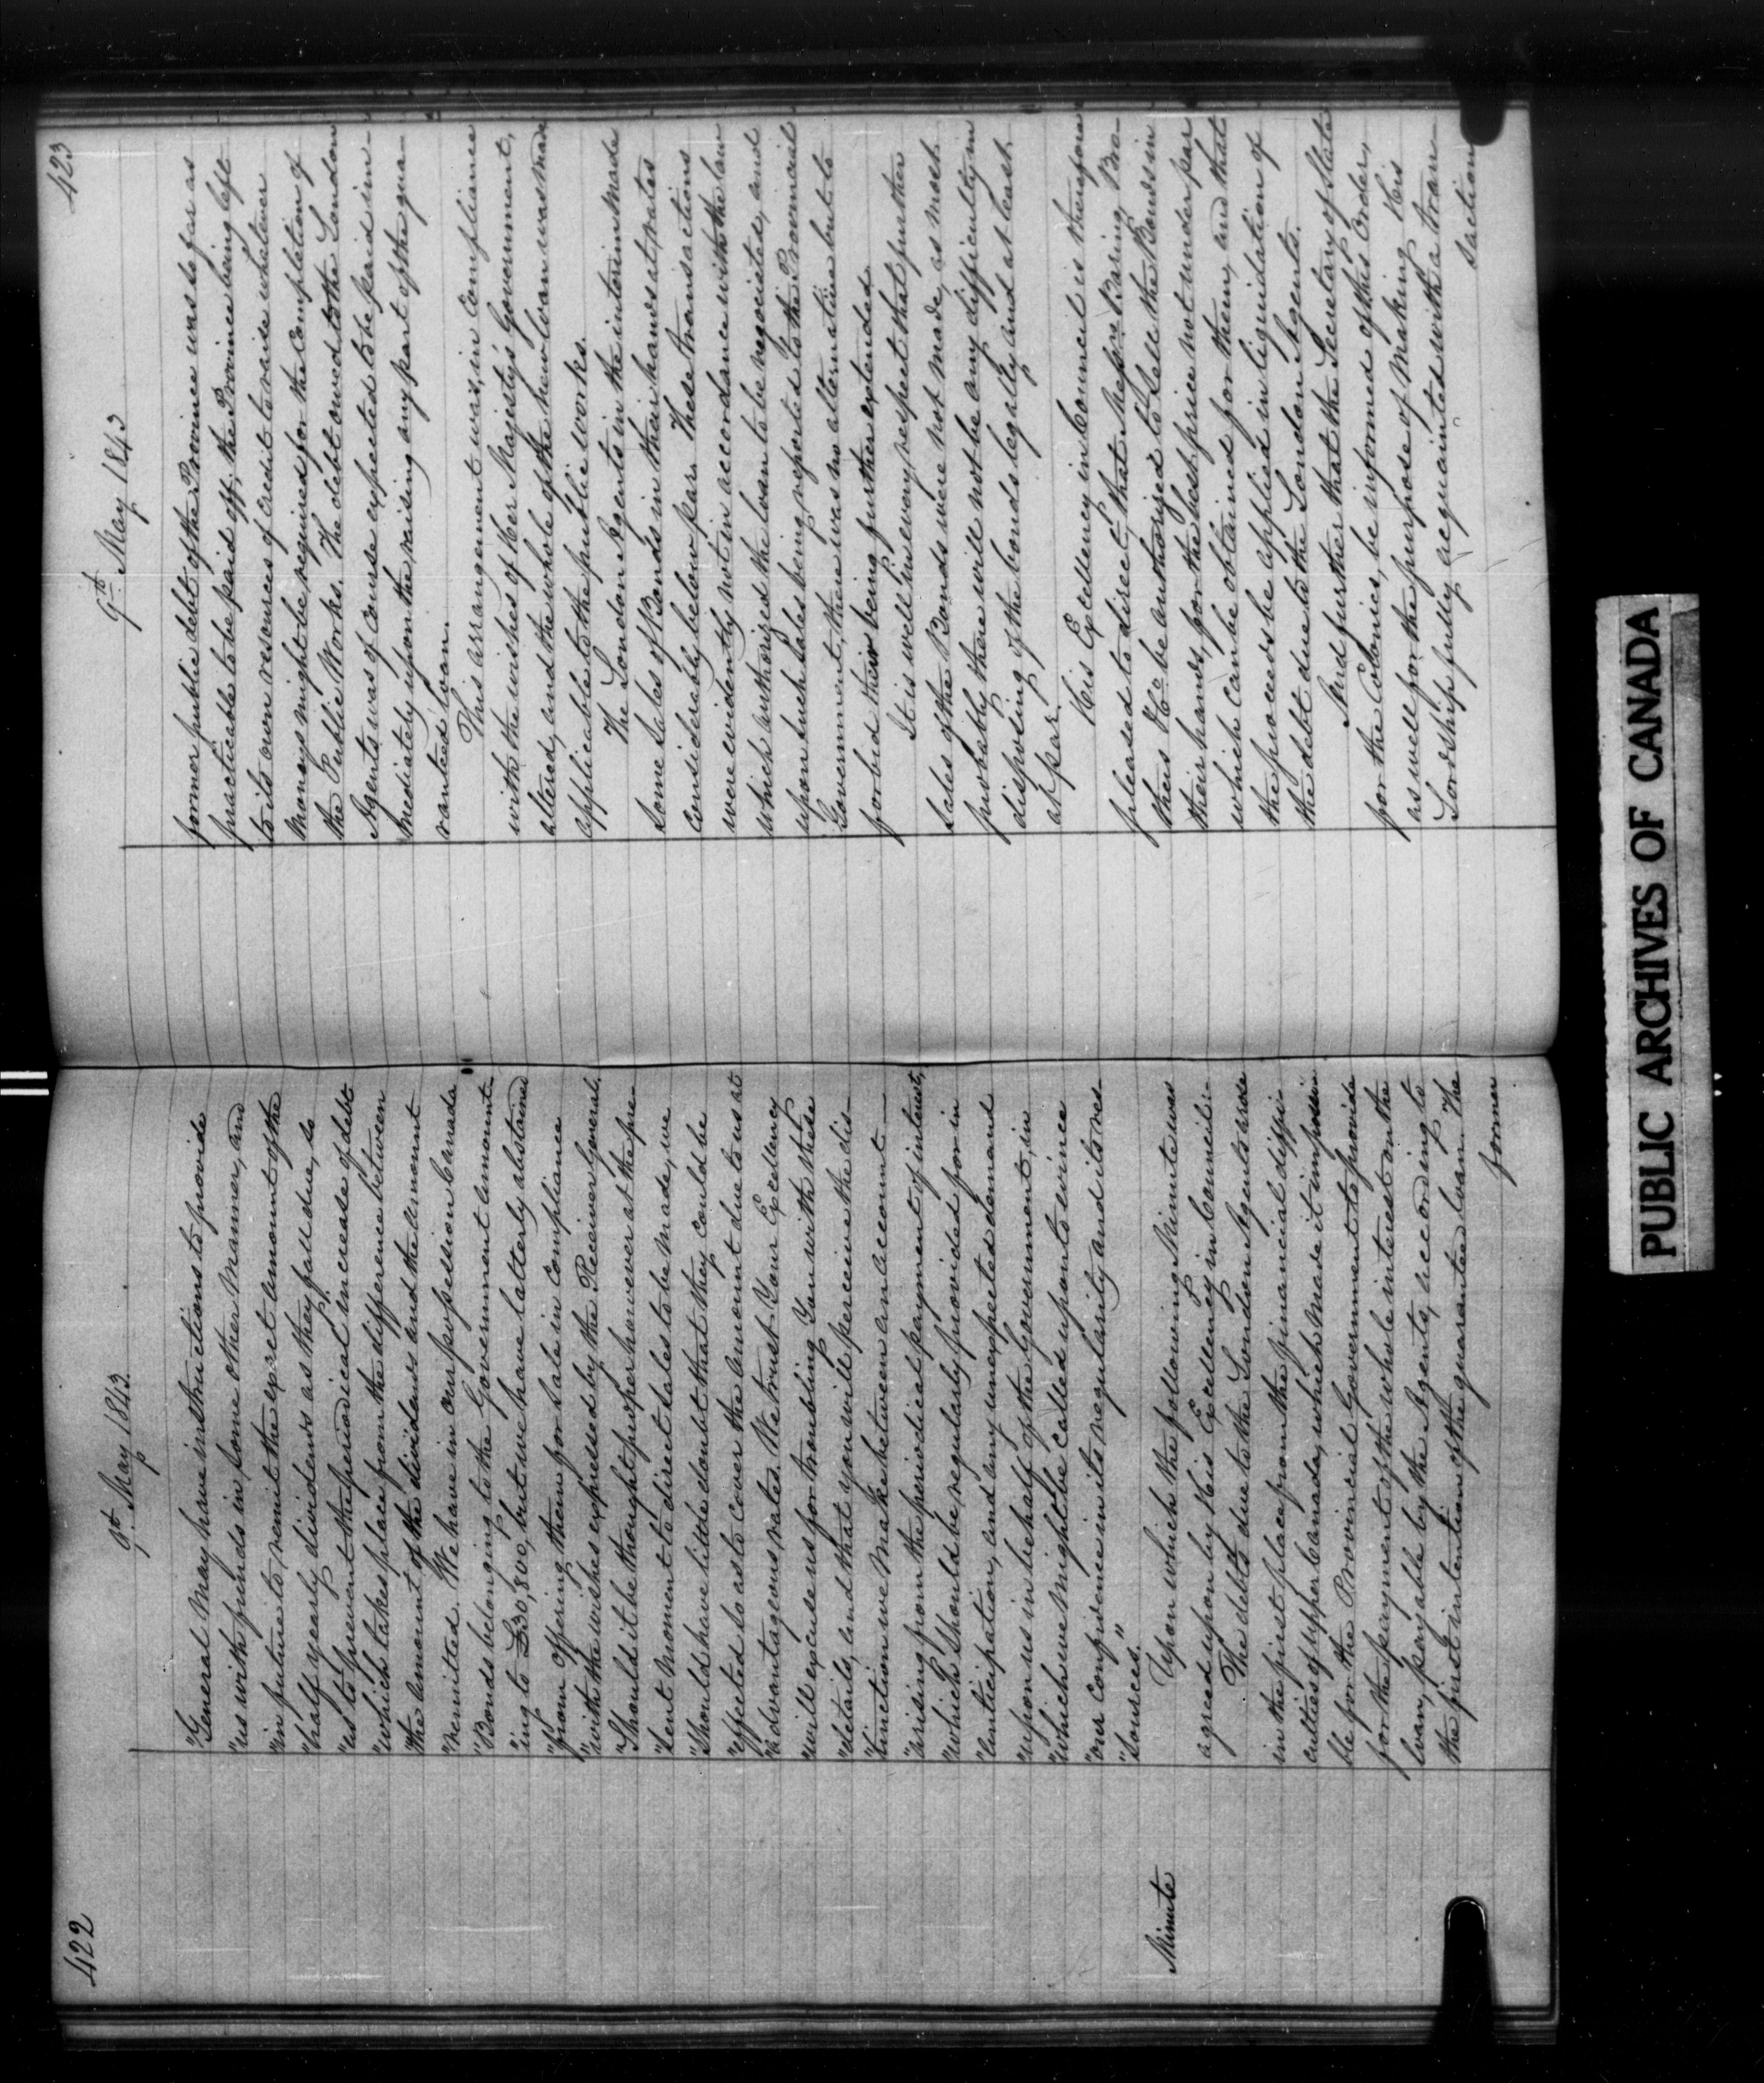 422
9th May 1843
"General may have instructions to provide
"us with funds in some other manner, and
"in future to remit the exact amount of the
"half yearly dividends as they fall due, so
"as to prevent the periodical increase of debt
"which takes place from the difference between
"the amount of the dividends and the amount
"remitted. We have in our possession Canada
"Bonds belonging to the Government amount-
"ing to £30,800, but we have latterly abstained
"from offering them for sale in compliance
"with the wishes expressed by the Receiver General.
"Should it be thought proper however at the pre-
"sent moment to direct sales to be made, we
"should have little doubt that they could be
"effected so as to cover the amount due to us at
"advantageous rates. We trust Your Excellency
"will excuse us for troubling You with these
"details, and that you will perceive the dis-
"tinction we make between an account
"arising from the periodical payment of interest,
"which should be regularly provided for in
"anticipation, and any unexpected demand
"upon us in behalf of the Government, in
"which we might be called upon to evince
"our confidence in its regularity and its res-
"sources."
Minute
Upon which the following Minute was
agreed upon by His Excellency in Council:-
The debts due to the London Agents arose
in the first place from the financial diffi-
culties of Upper Canada, which made it impossi-
ble for the Provincial Government to provide
for the payment of the whole interest on the
loan, payable by the Agents, according to
the first intention of the guaranteed loan. The
former
423
9th May 1843
former public debt of the Province was so far as
practicable to be paid off, the Province being left
to its own resources of Credit to raise whatever
moneys might be required for the completion of
the Public Works. The debt owed to the London
Agents was of course expected to be paid im-
mediately upon the raising any part of the gua-
ranteed loan.
This arrangement was, in compliance
with the wishes of Her Majesty's Government,
altered, and the whole of the new loan was made
applicable to the public works.
The London Agents in the interim made
some sales of Bonds in their hands at rates
considerably below par. These transactions
were evidently not in accordance with the law
which authorized the loan to be negociated, and
upon such sales being reported to the Provincial
Government, there was no alternative but to
forbid their being further extended.
It is well in every respect that further
sales of the Bonds were not made, as most
probably there will not be any difficulty in
disposing of the bonds legally and at least
at par.
His Excellency in Council is therefore
pleased to direct, that Messrs Baring, Bro-
thers &c. be authorised to sell the Bonds in
their hands, for the best price not under par
which can be obtained for them, and that
the proceeds be applied in liquidation of
the debt due to the London Agents.
And further that the Secretary of State
for the Colonies, be informed of this Order,
as well for the purpose of making His
Lordship fully acquainted with a tran-
saction
PUBLIC ARCHIVES OF CANADA